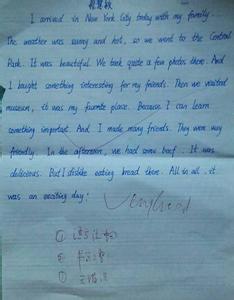 I arrived in New York City today with my family.
The weather was sunny and hot, so we went to the Central
Park. It was beautiful. We took quite a few photos there. And
I bought something interesting for my friends. Then we visited
museum, it was my favorite place. Because I can learn
something important. And I made many friends. They were very
friendly. In the afternoon, we had some beef. It was
delicious. But I dislike eating bread there. All in all, it
was an exciting day!
Very good
①
②